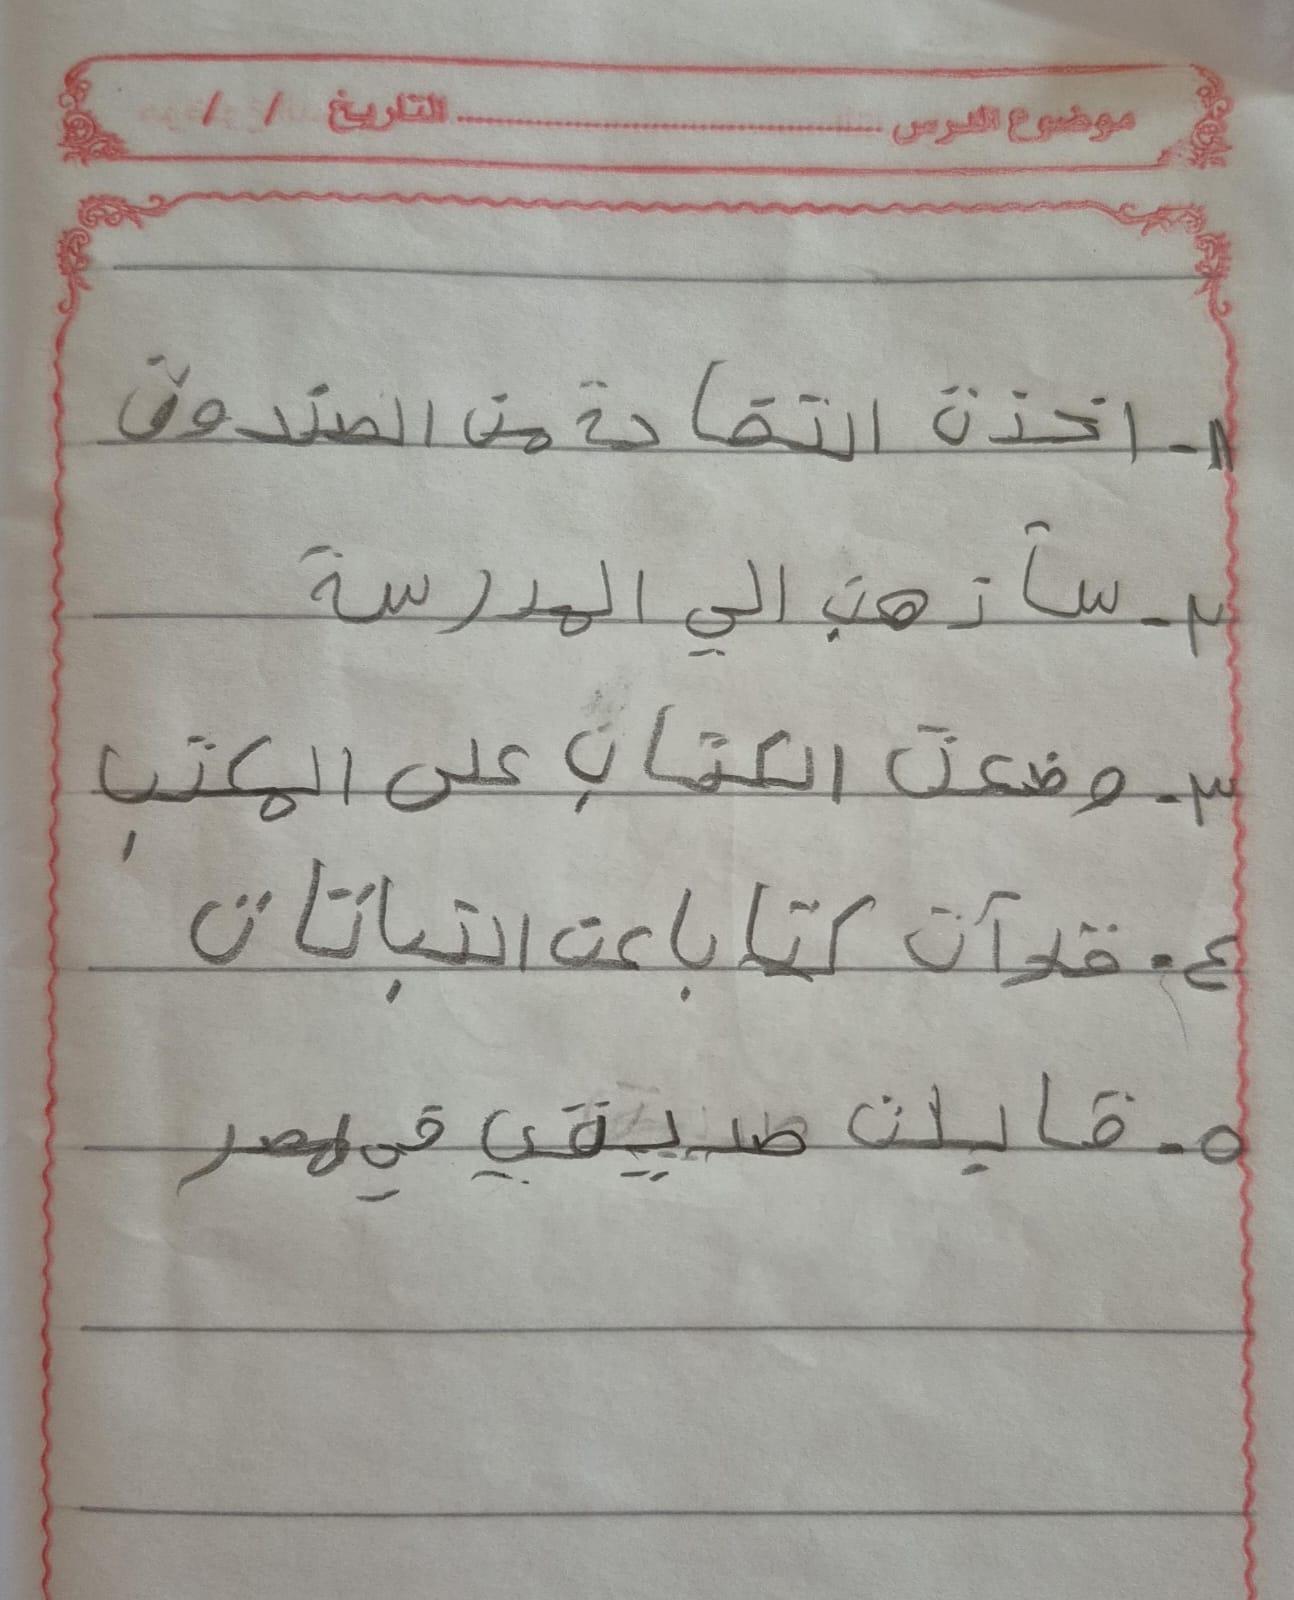 موضوع الدرس ........................ التاريخ / /
١- اخذت التفاحة من الصندوق
٢- سأذهب الي المدرسة
٣- وضعت الكتاب على المكتب
٤- قرآت كتابا عن النباتات
٥- قابلت صديقي في مصر